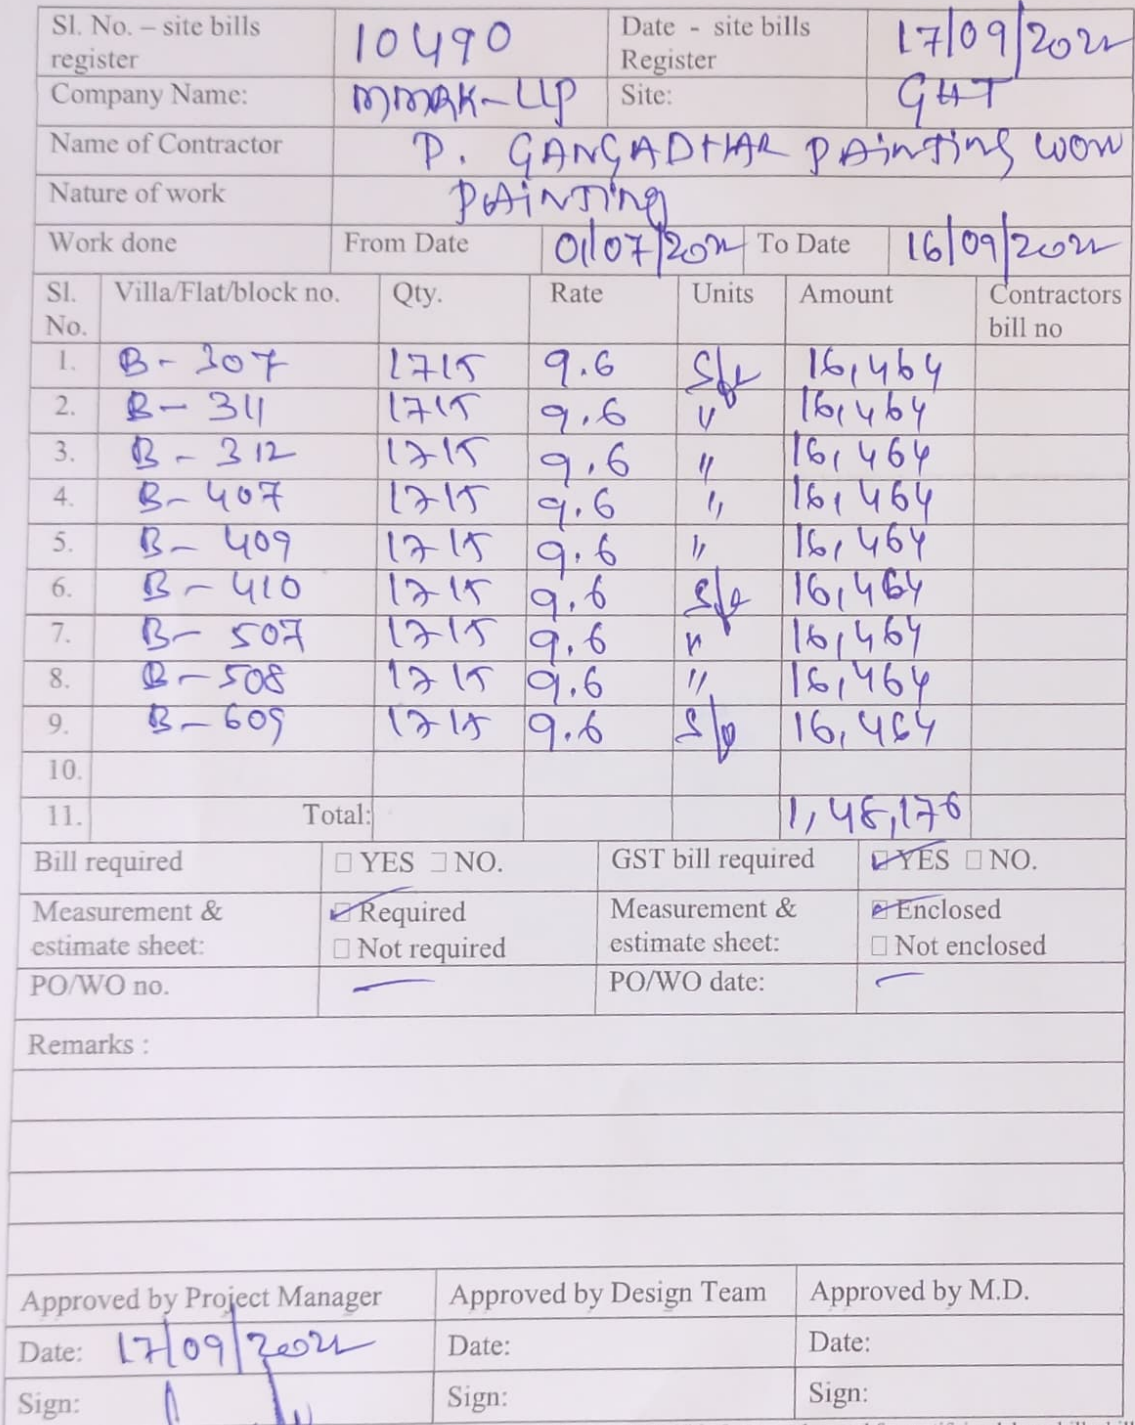 Sl. No. – site bills register 10490 Date - site bills Register 17/09/2022
Company Name: MMRK-LLP Site: GHT
Name of Contractor P. GANGADHAR PAiNTiNg WORK
Nature of work PAiNTiNg
Work done From Date 01/07/2022 To Date 16/09/2022
Sl. No. Villa/Flat/block no. Qty. Rate Units Amount Contractors bill no
1. B- 307 1715 9.6 Sft 16,464
2. B- 311 1715 9.6 " 16,464
3. B- 312 1715 9.6 " 16,464
4. B- 407 1715 9.6 " 16,464
5. B- 409 1715 9.6 " 16,464
6. B- 410 1715 9.6 Sft 16,464
7. B- 507 1715 9.6 " 16,464
8. B- 508 1715 9.6 " 16,464
9. B- 609 1715 9.6 Sft 16,464
10.
11. Total: 1,48,176
Bill required □ YES □ NO. GST bill required ☑ YES □ NO.
Measurement & estimate sheet: ☑ Required Measurement & estimate sheet: ☑ Enclosed
□ Not required □ Not enclosed
PO/WO no. — PO/WO date: —
Remarks :
Approved by Project Manager Approved by Design Team Approved by M.D.
Date: 17/09/2022 Date: Date:
Sign: Sign: Sign: